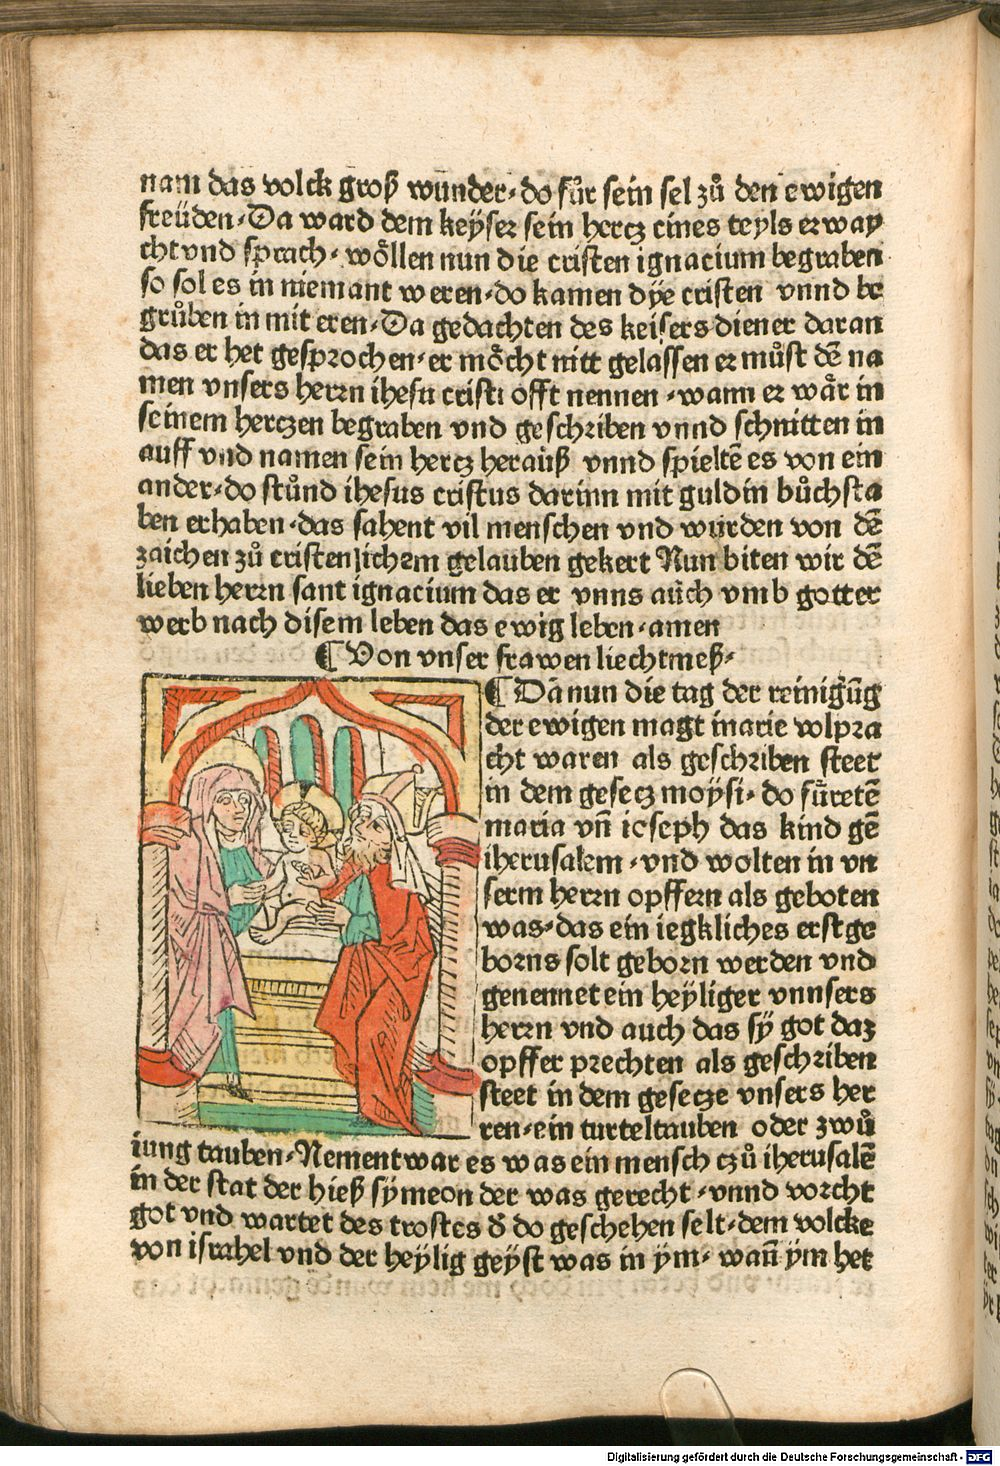 nam das volck groß wunder· do fůr sein sel zů den ewigen
freüden· Da ward dem keÿser sein hertz eines teyls erway
cht vnd sprach· wöllen nun die cristen ignacium begraben
so sol es in niemant weren· do kamen dÿe cristen vnnd be
grůben in mit eren· Da gedachten des keisers diener daran
das er het gesprochen· er möcht nitt gelassen er můst dē na
men vnsers herrn ihesu cristi offt nennen· wann er wår in
seinem hertzen begraben vnd geschriben vnnd schnitten in
auff vnd namen sein hertz herauß vnnd spieltē es von ein
ander· do stůnd ihesus cristus darinn mit guldin bůchsta
ben erhaben· das sahent vil menschen vnd wurden von dē
zaichen zů cristenlichem gelauben gekert Nun biten wir dē
lieben herrn sant ignacium das er vnns auch vmb gott er
werb nach disem leben das ewig leben· amen
¶ Von vnser frawen liechtmeß·
¶ Da nun die tag der reinigūg
der ewigen magt marie volpra
cht waren als geschriben steet
in dem gesecz moÿsi· do fůretē
maria vñ ioseph das kind gē
iherusalem· vnd wolten in vn
serm herrn opffern als geboten
was· das ein iegkliches erstge
borns solt geborn werden vnd
genennet ein heÿliger vnnsers
herrn vnd auch das sÿ got daz
opffer prechten als geschriben
steet in dem gesecze vnsers her
ren· ein turteltauben oder zwů
iung tauben· Nement war es was ein mensch czů iherusalē
in der stat der hieß sÿmeon der was gerecht· vnnd vorcht
got vnd wartet des trostes d̄ do geschehen selt· dem volcke
von israhel vnd der heÿlig geÿst was in ÿm· wañ ÿm het
Digitalisierung gefördert durch die Deutsche Forschungsgemeinschaft - DFG